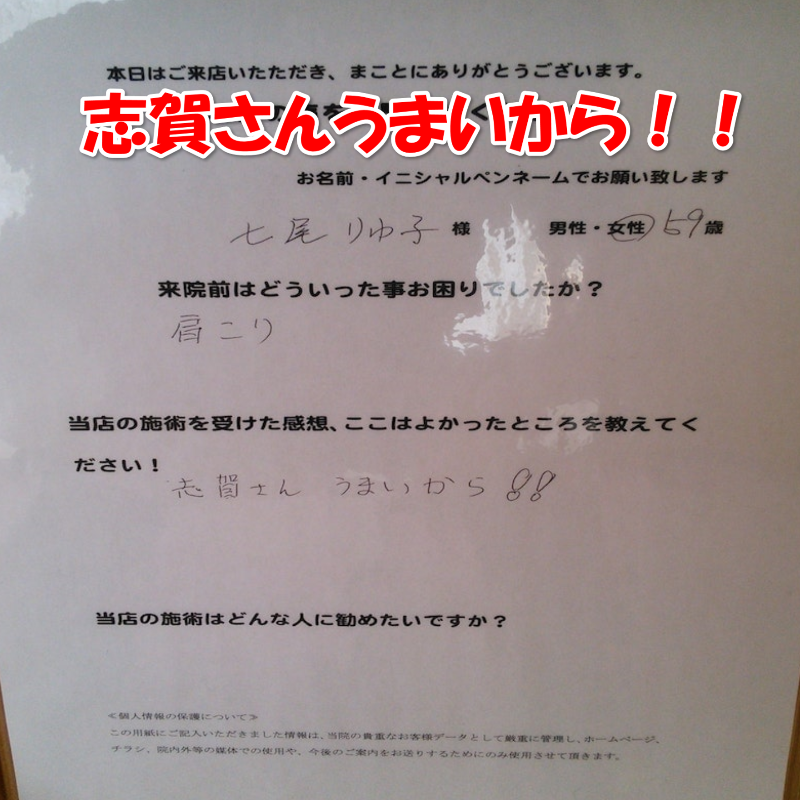 本日はご来店いただき、まことにありがとうございます。
志賀さんうまいから！！
お名前・イニシャルペンネームでお願い致します
七尾りゆ子 様 男性・女性 59歳
来院前はどういった事お困りでしたか？
肩こり
当店の施術を受けた感想、ここはよかったところを教えてく
ださい！
志賀さん うまいから！！
当店の施術はどんな人に勧めたいですか？
≪個人情報の保護について≫
この用紙にご記入いただきました情報は、当院の貴重なお客様データとして厳重に管理し、ホームページ、
チラシ、院内外等の媒体での使用や、今後のご案内をお送りするためにのみ使用させて頂きます。